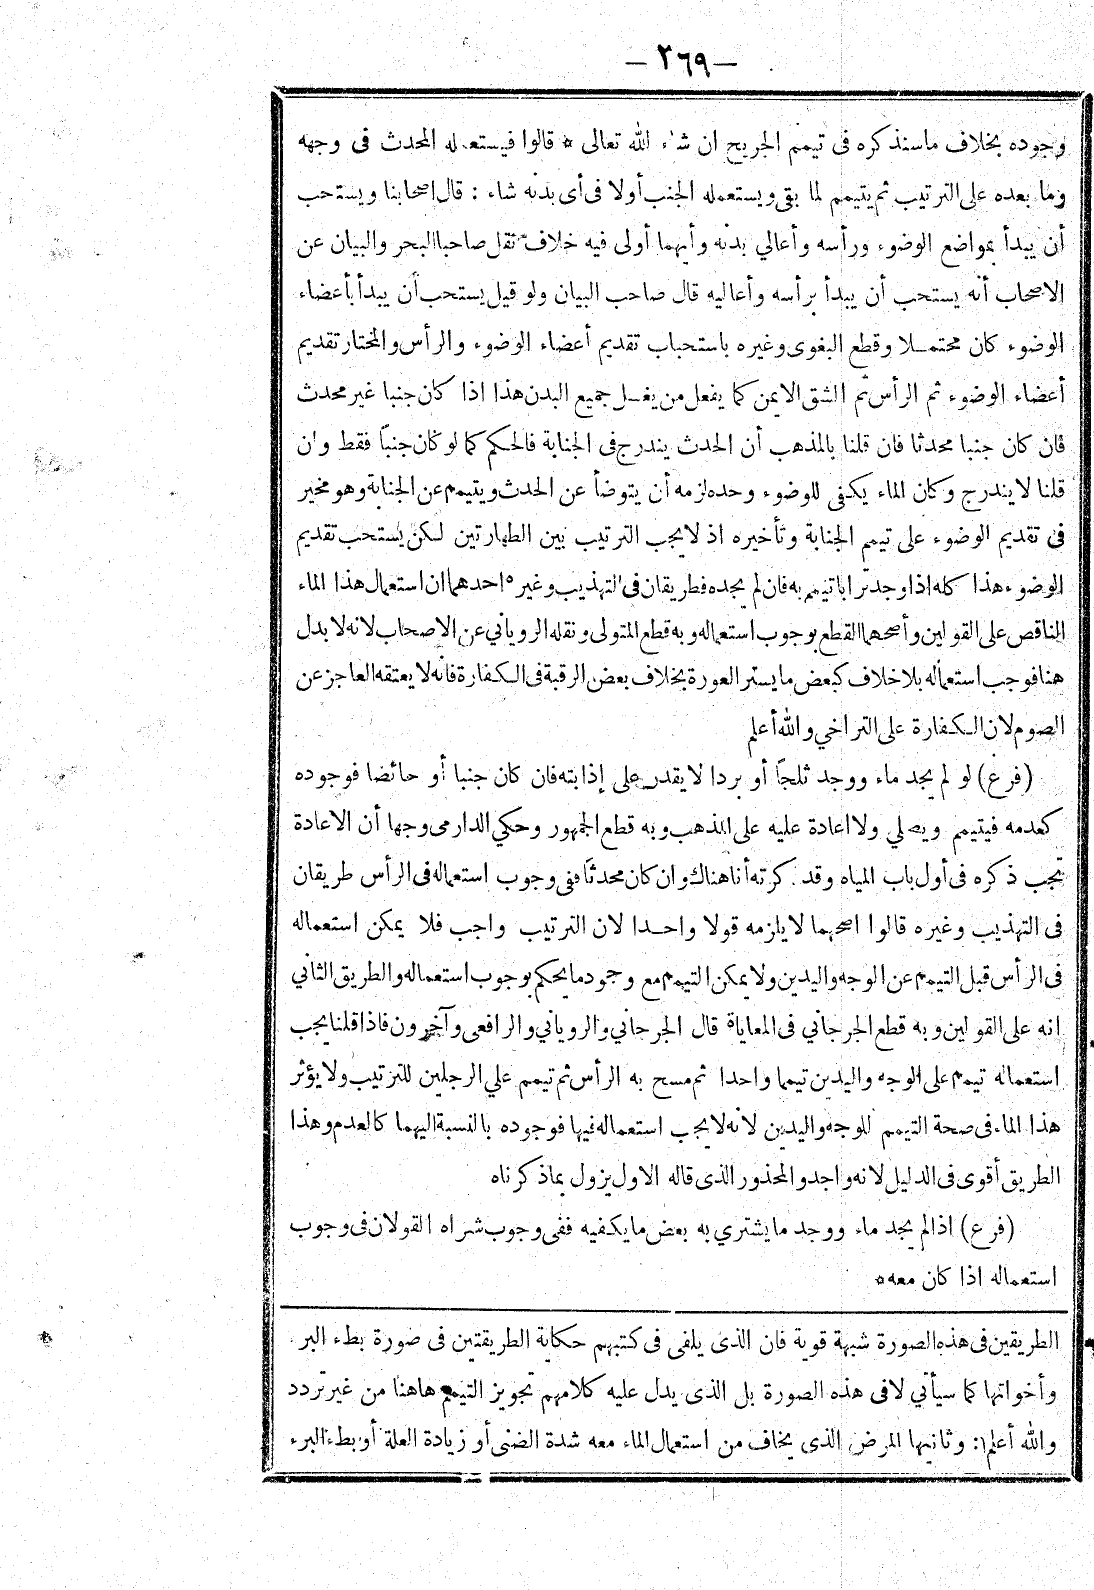 — ٢٦٩ —
وجوده بخلاف ماسنذكره فى تيمم الجريح ان شاء الله تعالى * قالوا فيستعمله المحدث فى وجهه
وما بعده على الترتيب ثم يتيمم لما بقى ويستعمله الجنب أولا فى أى بدنه شاء : قال اصحابنا ويستحب
أن يبدأ بمواضع الوضوء ورأسه وأعالي بدنه وأيهما أولى فيه خلاف نقل صاحبا البحر والبيان عن
الاصحاب أنه يستحب أن يبدأ برأسه وأعاليه قال صاحب البيان ولو قيل يستحب أن يبدأ بأعضاء
الوضوء كان محتمـلا وقطع البغوى وغيره باستحباب تقديم أعضاء الوضوء والرأس والمختار تقديم
أعضاء الوضوء ثم الرأس ثم الشق الايمن كما يفعل من يغسل جميع البدن هذا اذا كان جنبا غير محدث
فان كان جنبا محدثا فان قلنا بالمذهب أن الحدث يندرج فى الجنابة فالحكم كما لو كان جنباً فقط وان
قلنا لا يندرج وكان الماء يكفى للوضوء وحده لزمه أن يتوضأ عن الحدث ويتيمم عن الجنابة وهو مخير
فى تقديم الوضوء على تيمم الجنابة وتأخيره اذ لايجب الترتيب بين الطهارتين لكن يستحب تقديم
الوضوء هذا كله اذا وجد ترابا تيمم به فان لم يجده فطريقان فى التهذيب وغيره احدهما ان استعمال هذا الماء
الناقص على القولين وأصحهما القطع بوجوب استعماله وبه قطع المتولى ونقله الروياني عن الاصحاب لانه لا بدل
هنا فوجب استعماله بلا خلاف كبعض ما يستر العورة بخلاف بعض الرقبة فى الـكفارة فانه لا يعتقه العاجز عن
الصوم لان الـكفارة على التراخي والله أعلم
(فرع) لو لم يجد ماء ووجد ثلجاً أو بردا لا يقدر على إذابته فان كان جنبا أو حائضا فوجوده
كعدمه فيتيمم ويصلي ولا اعادة عليه على المذهب وبه قطع الجمهور وحكي الدارمى وجها أن الاعادة
تجب ذكره فى أول باب المياه وقد ذكرته أنا هناك وان كان محدثا ففى وجوب استعماله فى الرأس طريقان
فى التهذيب وغيره قالوا اصحهما لا يلزمه قولا واحـدا لان الترتيب واجب فلا يمكن استعماله
فى الرأس قبل التيمم عن الوجه واليدين ولا يمكن التيمم مع وجود ما يحكم بوجوب استعماله والطريق الثاني
انه على القولين وبه قطع الجرجاني فى المعاياة قال الجرجاني والروياني والرافعى وآخرون فاذا قلنا يجب
استعماله تيمم على الوجه واليدين تيمما واحدا ثم مسح به الرأس ثم تيمم علي الرجلين للترتيب ولا يؤثر
هذا الماء فى صحة التيمم للوجه واليدين لانه لا يجب استعماله فيها فوجوده بالنسبة اليهما كالعدم وهذا
الطريق أقوى فى الدليل لانه واجد والمحذور الذى قاله الاول يزول بما ذكرناه
(فرع) اذا لم يجد ماء ووجد ما يشتري به بعض ما يكفيه ففى وجوب شراه القولان فى وجوب
استعماله اذا كان معه *
الطريقين فى هذه الصورة شبهة قوية فان الذى يلفى فى كتبهم حكاية الطريقتين فى صورة بطء البر.
وأخواتها كما سيأتي لافى هذه الصورة بل الذى يدل عليه كلامهم تجويز التيمم هاهنا من غير تردد
والله أعلم : وثانيها المرض الذى يخاف من استعمال الماء معه شدة الضنى أو زيادة العلة أو بطء البرء